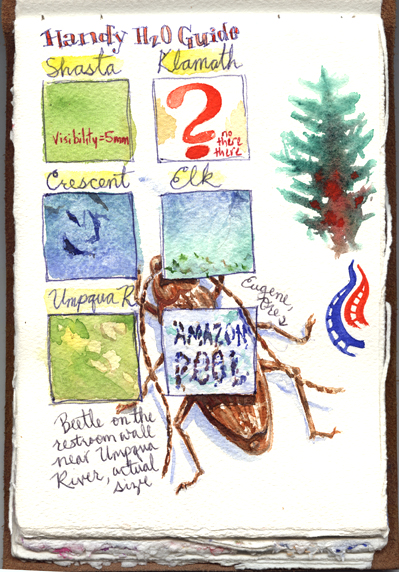 Handy H2O Guide
Shasta
Klamath
visibility=5mm
?
no
there
there
Crescent
Elk
Umpqua R.
Eugene,
Ores
AMAZON
POOL
Beetle on the
restroom wall
near Umpqua
River, actual
size